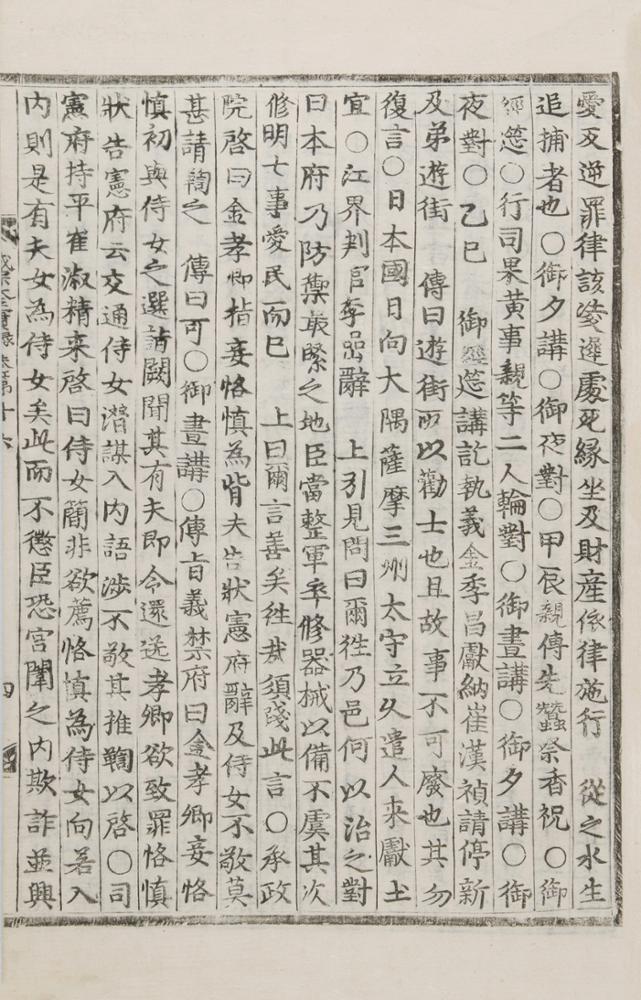 愛歹逆罪律該凌遲處死緣坐及財産依律施行　從之水生
追捕者也○御夕講○御夜對○甲辰親傳先蠶祭香祝○御
經筵○行司果黃事親等二人輪對○御晝講○御夕講○御
夜對○乙巳　御經筵講訖執義金季昌獻納崔漢禎請停新
及弟遊街　傳曰遊街所以勸士也且故事不可廢也其勿
復言○日本國日向大隅薩摩三州太守立久遣人来獻土
宜○江界判官李嵒辭　上引見問曰爾徃乃邑何以治之對
曰本府乃防禦最緊之地臣當整軍卒修器械以備不虞其次
修明七事愛民而已　上曰爾言善矣徃哉須踐此言○承政
院啓曰金孝卿指妾恪慎為背夫告狀憲府辭及侍女不敬莫
甚請鞫之　傳曰可○御晝講○傳旨義禁府曰金孝卿妾恪
慎初與侍女之選詣闕聞其有夫即令還送孝卿欲致罪恪慎
狀告憲府云交通侍女潛謀入內語涉不敬其推鞫以啓○司
憲府持平崔淑精来啓曰侍女簡非欲薦恪慎為侍女向若入
內則是有夫女為侍女矣此而不懲臣恐宮闈之內欺詐並興
成宗大王實錄卷第十六
四